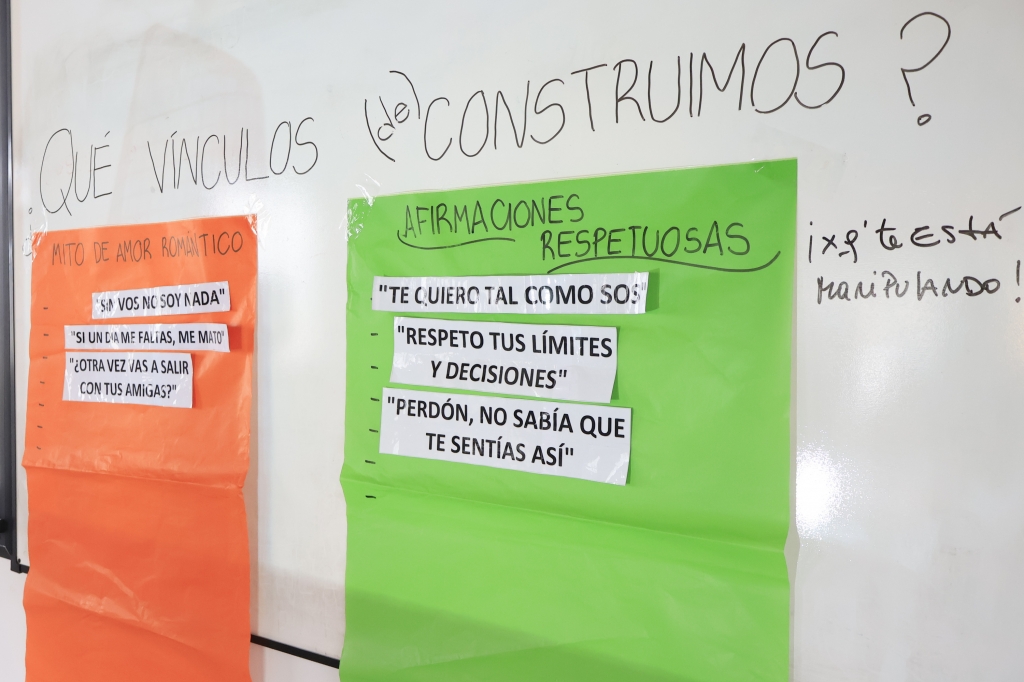 ¿QUÉ VÍNCULOS (de) CONSTRUIMOS?
MITO DE AMOR ROMÁNTICO
"SIN VOS NO SOY NADA"
"SI UN DIA ME FALTAS, ME MATO"
"¿OTRA VEZ VAS A SALIR
CON TUS AMIGAS?"
AFIRMACIONES
RESPETUOSAS
"TE QUIERO TAL COMO SOS"
"RESPETO TUS LÍMITES
Y DECISIONES"
"PERDÓN, NO SABÍA QUE
TE SENTÍAS ASÍ"
¡xq' te ESTÁ
MANIPULANDO!